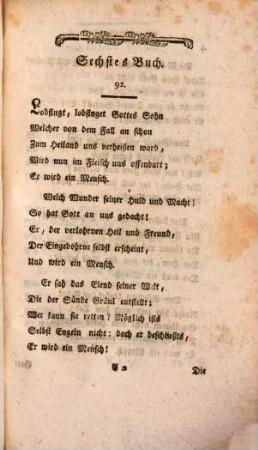 Sechstes Buch.
92.
Lobsingt, lobsinget Gottes Sohn
Welcher von dem Fall an schon
Zum Heiland uns verheissen ward,
Wird nun im Fleisch uns offenbart;
Er wird ein Mensch.
Welch Wunder seiner Huld und Macht!
So hat Gott an uns gedacht!
Er, der verlohrnen Heil und Freund,
Der Eingebohrne selbst erscheint,
Und wird ein Mensch.
Er sah das Elend seiner Welt,
Die der Sünde Gräul entstellt;
Wer kann sie retten? Möglich ists
Selbst Engeln nicht: doch er beschließts,
Er wird ein Mensch!
Die